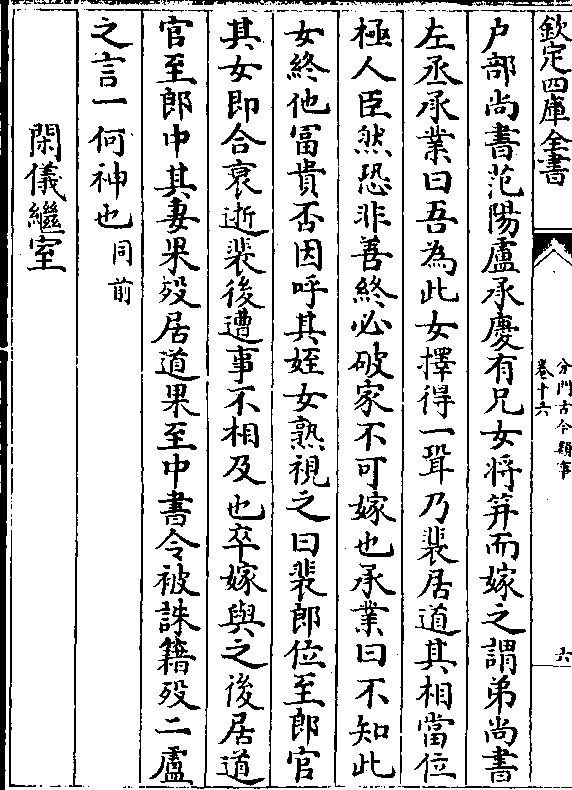 欽定四庫全書
分門古今類事
卷十六
六
户部尚書范陽盧承慶有兄女將笄而嫁之謂弟尚書
左丞承業曰吾為此女擇得一壻乃裴居道其相當位
極人臣然恐非善終必破家不可嫁也承業曰不知此
女終他冨貴否因呼其姪女熟視之曰裴郎位至郎官
其女即合哀逝裴後遭事不相及也卒嫁與之後居道
官至郎中其妻果殁居道果至中書令被誅籍殁二盧
之言一何神也同前
閑儀繼室